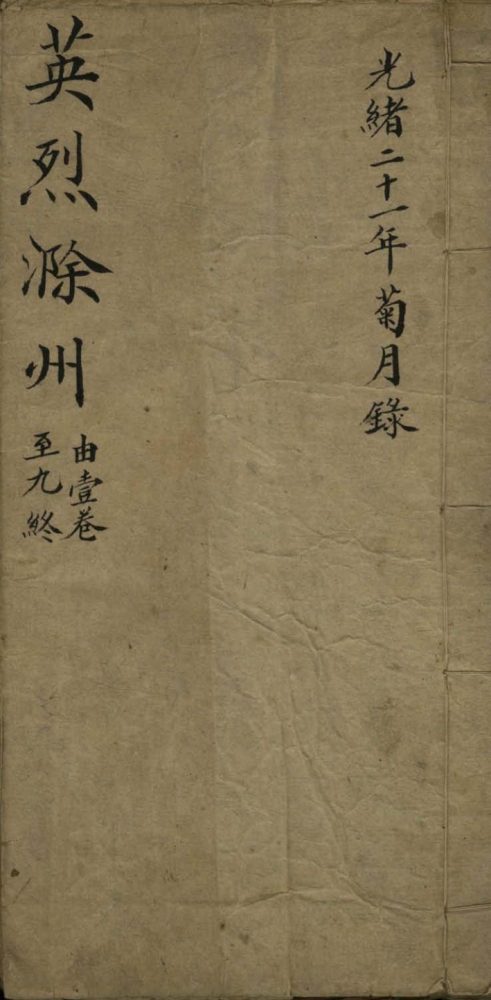 光緒二十一年菊月錄
英烈滁州
由壹卷
至九終